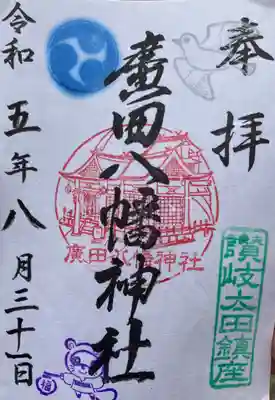 奉拝
廣田八幡神社
廣田八幡神社
讃岐太田鎮座
令和五年八月三十一日
福